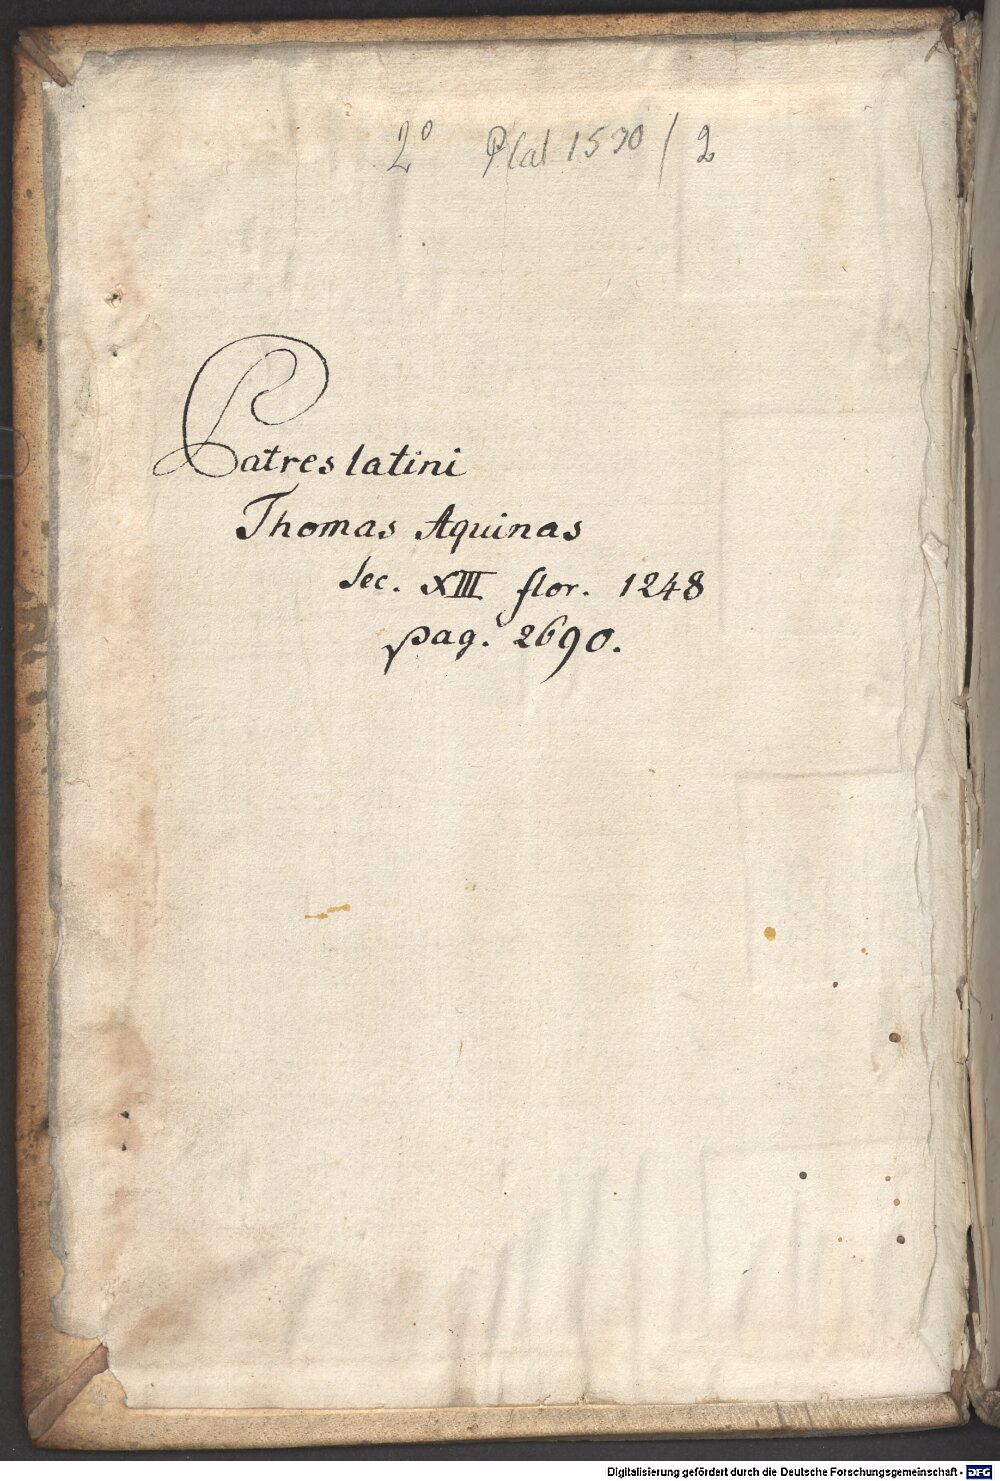 2° P lat 1590 / 2
Patres latini
Thomas Aquinas
Sec. XIII flor. 1248
pag. 2690.
Digitalisierung gefördert durch die Deutsche Forschungsgemeinschaft - DFG